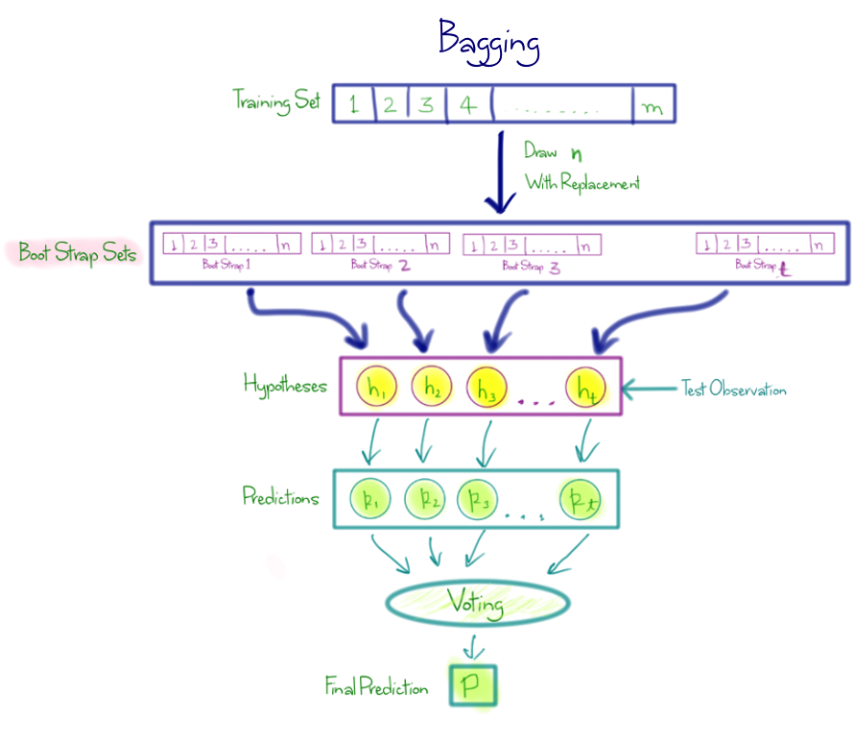 Bagging
Training Set 1 2 3 4 ........ m
Draw n
With Replacement
Boot Strap Sets
1 2 3 ..... n
Boot Strap 1
1 2 3 ..... n
Boot Strap 2
1 2 3 ..... n
Boot Strap 3
1 2 3 ..... n
Boot Strap t
Hypotheses h1 h2 h3 ... ht
Test Observation
Predictions p1 p2 p3 ... pt
Voting
Final Prediction P